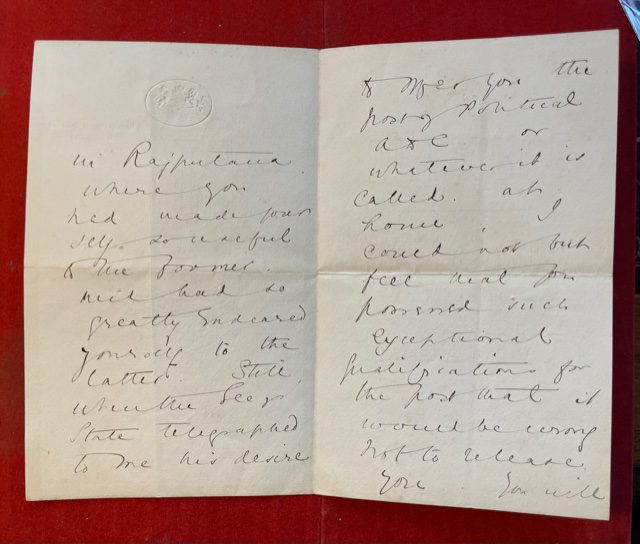 in Rajputana
where you
had made your
self so useful
to the former.
and had so
greatly endeared
yourself to the
latter. Still,
when the Secy
State telegraphed
to me his desire
to offer you the
post of Political
ADC or
whatever it is
called. at
home, I
could not but
feel that you
possessed such
exceptional
qualifications for
the post that it
would be wrong
not to release
you. You will